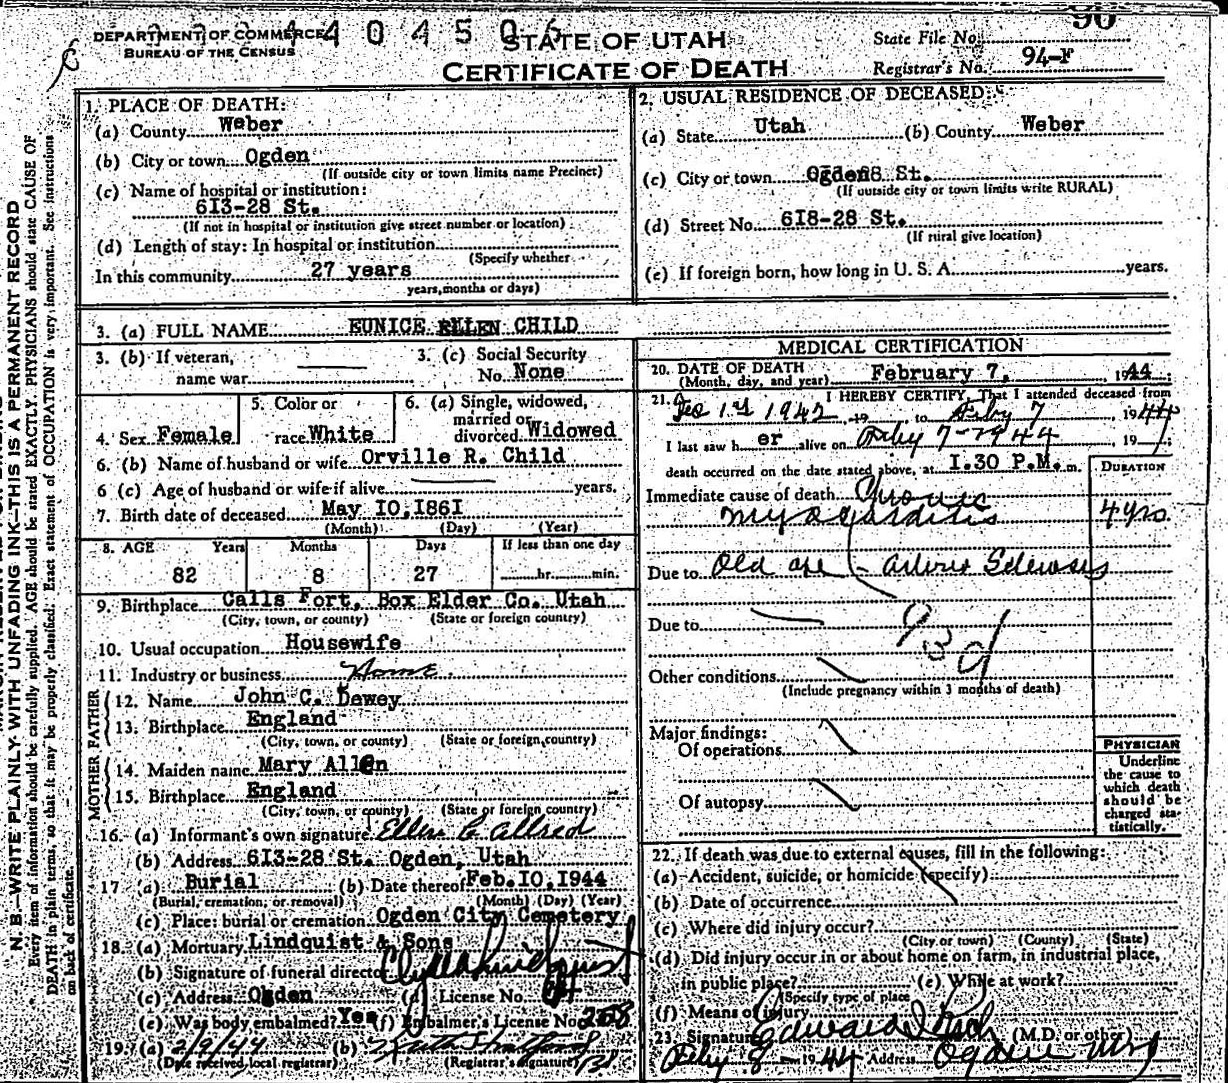 96
DEPARTMENT OF COMMERCE
BUREAU OF THE CENSUS
4 4 0 4 5 0
STATE OF UTAH
CERTIFICATE OF DEATH
State File No.
Registrar's No. 94-r
1. PLACE OF DEATH:
(a) County Weber
(b) City or town Ogden
(If outside city or town limits name Precinct)
(c) Name of hospital or institution:
6I3-28 St.
(If not in hospital or institution give street number or location)
(d) Length of stay: In hospital or institution
(Specify whether
In this community 27 years
years, months or days)
2. USUAL RESIDENCE OF DECEASED:
(a) State Utah (b) County Weber
(c) City or town Ogden St.
(If outside city or town limits write RURAL)
(d) Street No. 6I8-28 St.
(If rural give location)
(e) If foreign born, how long in U. S. A. years.
3. (a) FULL NAME EUNICE ELLEN CHILD
3. (b) If veteran,
name war
3. (c) Social Security
No. None
4. Sex Female
5. Color or
race White
6. (a) Single, widowed,
married or
divorced Widowed
6. (b) Name of husband or wife Orville R. Child
6 (c) Age of husband or wife if alive years.
7. Birth date of deceased May IO, I86I
(Month) (Day) (Year)
8. AGE Years Months Days If less than one day
82 8 27 hr. min.
9. Birthplace Calls Fort, Box Elder Co. Utah
(City, town, or county) (State or foreign country)
10. Usual occupation Housewife
11. Industry or business Home
FATHER
12. Name John C. Dewey
13. Birthplace England
(City, town, or county) (State or foreign country)
MOTHER
14. Maiden name Mary Allen
15. Birthplace England
(City, town, or county) (State or foreign country)
16. (a) Informant's own signature Ellen C Allred
(b) Address 6I3-28 St. Ogden, Utah
17 (a) Burial (b) Date thereof Feb. IO, I944
(Burial, cremation, or removal) (Month) (Day) (Year)
(c) Place: burial or cremation Ogden City Cemetery
18. (a) Mortuary Lindquist & Sons
(b) Signature of funeral director Clyde Lindquist
(c) Address Ogden (d) License No.
(e) Was body embalmed? Yes (f) Embalmer's License No.
19. (a) 2/9/44 (b)
(Date received local registrar) (Registrar's signature)
MEDICAL CERTIFICATION
20. DATE OF DEATH
(Month, day, and year) February 7, 1944;
21. I HEREBY CERTIFY, That I attended deceased from
1942, 19 to Feby 7 1944
I last saw her alive on Feby 7-1944 19
death occurred on the date stated above, at I.30 P.M. m.
DURATION
Immediate cause of death Chronic
Myocarditis 4 yrs
Due to Old age - Arterio Sclerosis
Due to
93d
Other conditions
(Include pregnancy within 3 months of death)
Major findings:
Of operations
Of autopsy
PHYSICIAN
Underline
the cause to
which death
should be
charged sta-
tistically.
22. If death was due to external causes, fill in the following:
(a) Accident, suicide, or homicide (specify)
(b) Date of occurrence
(c) Where did injury occur?
(City or town) (County) (State)
(d) Did injury occur in or about home on farm, in industrial place,
in public place? (e) While at work?
(Specify type of place
(f) Means of injury
23. Signature Edward I Rich (M.D. or other)
Feby 8 - 1944 Address Ogden Utah
N. B.—WRITE PLAINLY WITH UNFADING INK—THIS IS A PERMANENT RECORD
Every item of information should be carefully supplied. AGE should be stated EXACTLY. PHYSICIANS should state CAUSE OF
DEATH in plain terms, so that it may be properly classified. Exact statement of OCCUPATION is very important. See instructions
on back of certificate.